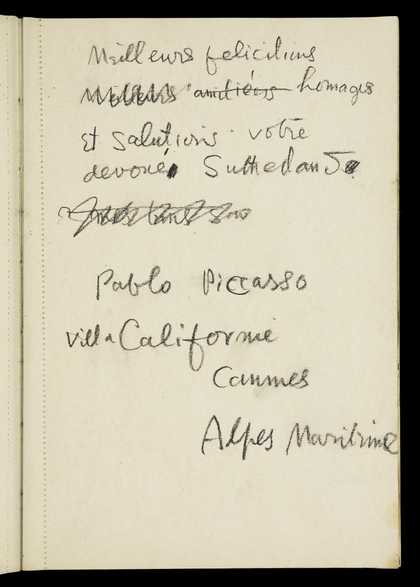 Meilleurs felicitions
amitiés homages
Et Salutions votre
devoué
Pablo Piccasso
villa Californie
Cannes
Alpes Maritime